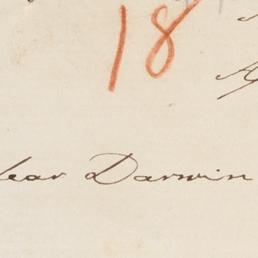 18
ear Darwin